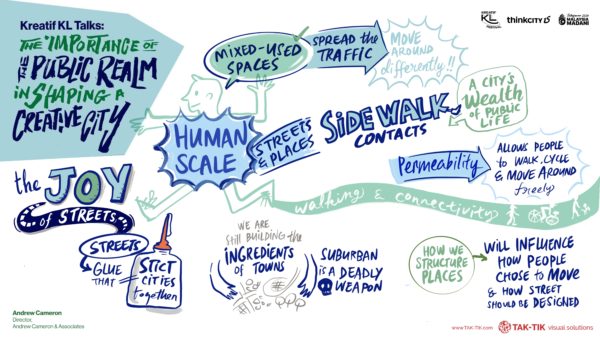 Kreatif KL Talks:
THE IMPORTANCE OF
THE PUBLIC REALM
IN SHAPING A
CREATIVE CITY
KREATIF
KL
thinkcity
MALAYSIA
MADANI
MIXED-USED
SPACES
SPREAD THE
TRAFFIC
MOVE
AROUND
differently!!
HUMAN
SCALE
STREETS
& PLACES
SIDEWALK
CONTACTS
A CITY'S
Wealth
OF PUBLIC
LIFE
Permeability
ALLOWS PEOPLE
TO WALK, CYCLE
& MOVE AROUND
freely
walking & connectivity
the JOY
OF STREETS
STREETS
GLUE
THAT
STICT
CITIES
together
WE ARE
Still BUILDING the
INGREDIENTS
OF TOWNS
SUBURBAN
IS A DEADLY
WEAPON
HOW WE
STRUCTURE
PLACES
WILL INFLUENCE
HOW PEOPLE
CHOSE TO MOVE
& HOW STREET
SHOULD BE DESIGNED
Andrew Cameron
Director,
Andrew Cameron & Associates
www.TAK-TIK.com
TAK-TIK visual solutions